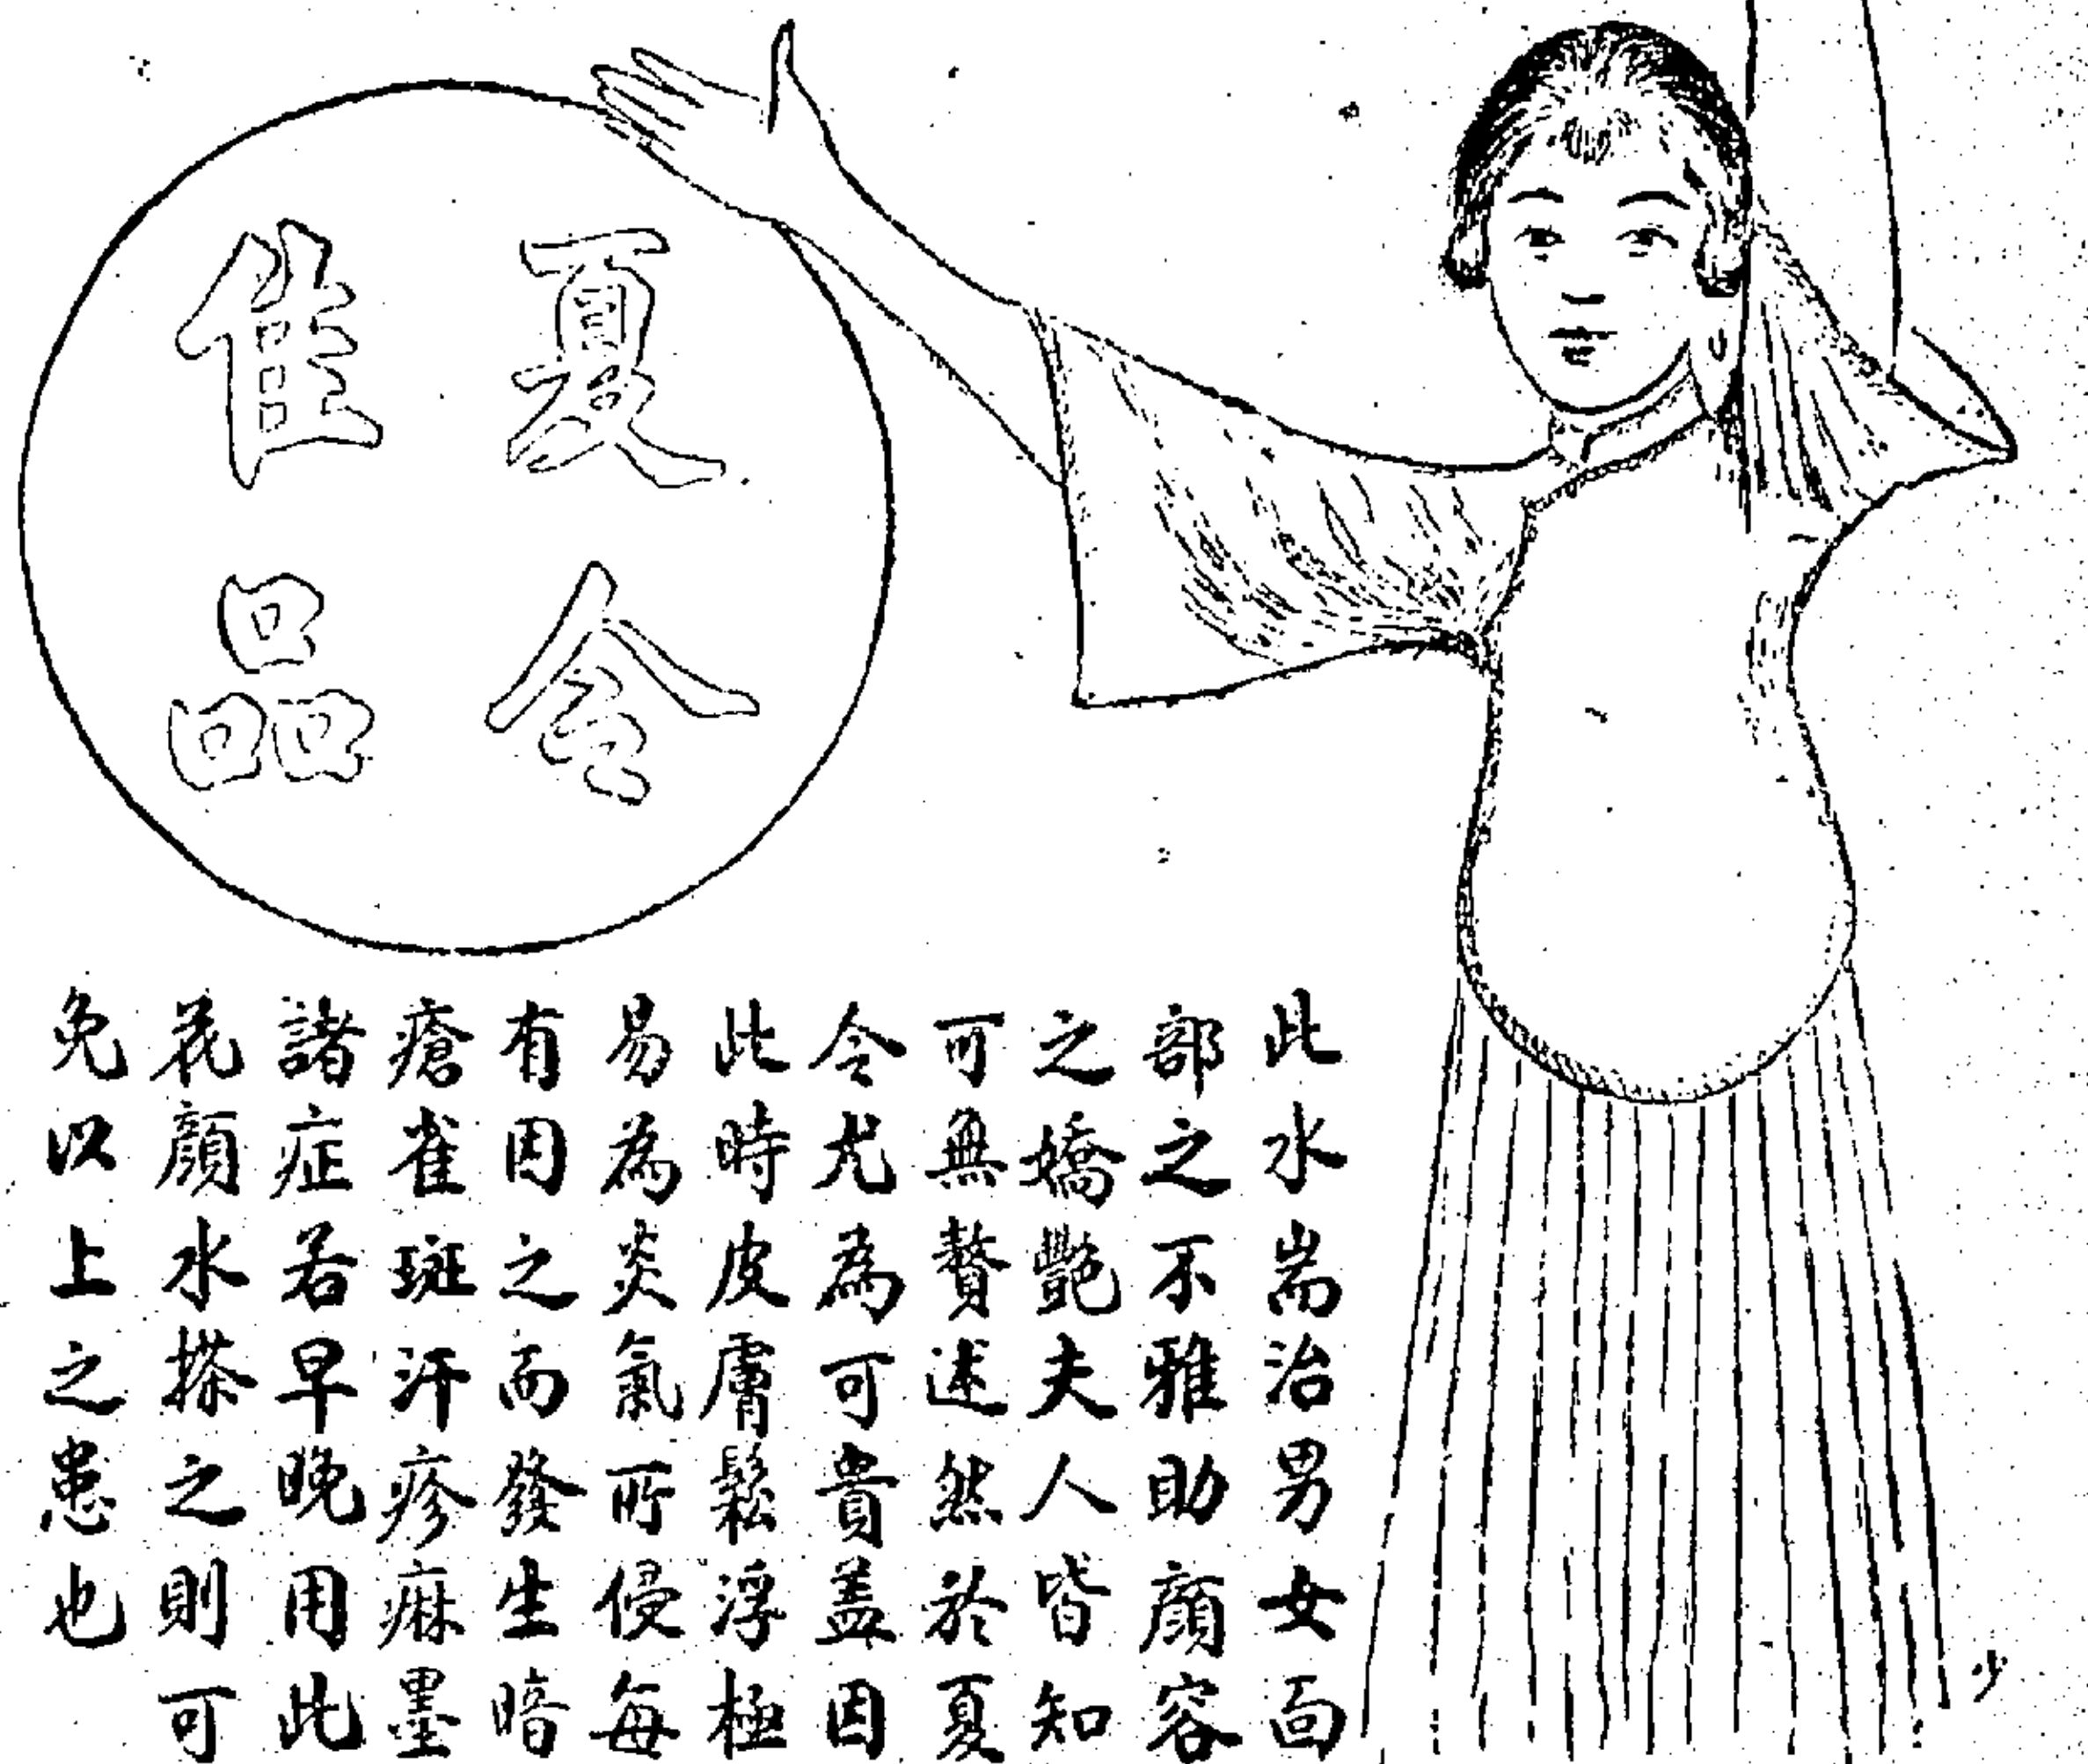 夏令
佳品
此水耑治男女面
部之不雅助顔容
之嬌艷夫人皆知
可無贅述然於夏
令尤為可貴盖因
此時皮膚鬆浮極
易為炎氣所侵每
有因之而發生暗
瘡雀斑汗疹痳墨
諸症若早晚用此
花顔水搽之則可
免以上之患也
少